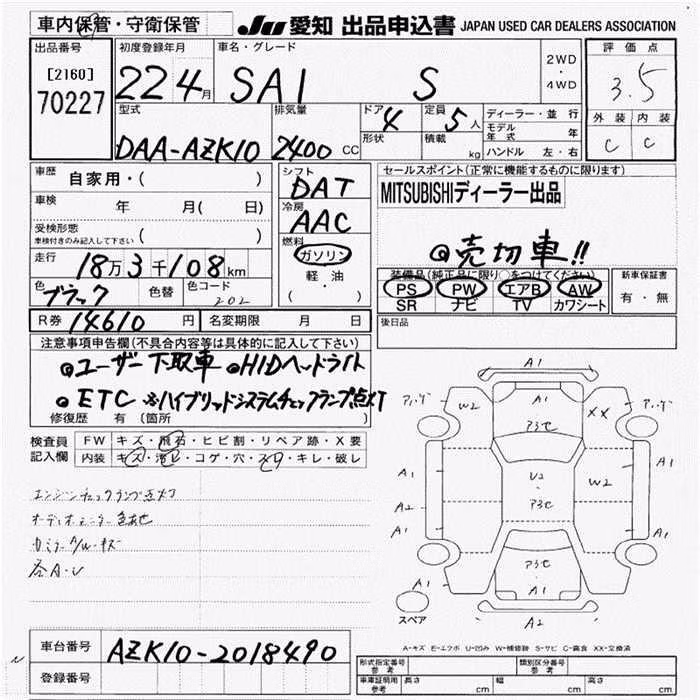 車内保管・守衛保管
JU 愛知 出品申込書 JAPAN USED CAR DEALERS ASSOCIATION
出品番号 初度登録年月 車名・グレード 2WD・4WD 評価点
[2160]
70227 22 4月 SAI S 3.5
外装 内装
C C
型式 排気量 ドア 定員 ディーラー・並行
DAA-AZK10 2400CC 4 5人 モデル年式 年
形状 積載 kg ハンドル 左・右
車歴 自家用・( )
シフト DAT
セールスポイント(正常に機能するものに限ります)
MITSUBISHIディーラー出品
車検 年 月( 日)
冷房 AAC
受検形態 ( )
車検付きのみ記入して下さい
◎売切車!!
燃料 ガソリン 軽油 ( ・ )
走行 18万3千108km
装備品(純正品に限り○をつけてください) 新車保証書
PS PW エアB AW 有・無
SR ナビ TV カワシート
色 ブラック 色替 色コード 202
後日品
R券 14610円 名変期限 月 日
注意事項申告欄(不具合内容等は具体的に記入して下さい)
◎ユーザー下取車 ◎HIDヘッドライト
◎ETC ※ハイブリッドシステムチェックランプ点灯
修復歴 有 (箇所 )
検査員記入欄 FW キズ・飛石・ヒビ割・リペア跡・X要
内装 キズ・汚レ・コゲ・穴・スレ・キレ・破レ
エンジンチェックランプ点灯
オーディオモニター色あせ
各A・U
A1
W2 A1 XX
A3C
A1 U2 A1
A2 A3C
A1 A1
A3C
A1 A1 A1
スペア A2
A-キズ E-エクボ U-凹み W-補修跡 S-サビ C-腐食 XX-交換済
車台番号 AZK10-2018490
登録番号
型式指定番号 参考 類別区分番号 参考
車庫証明用 参考 長さ cm 幅 cm 高さ cm